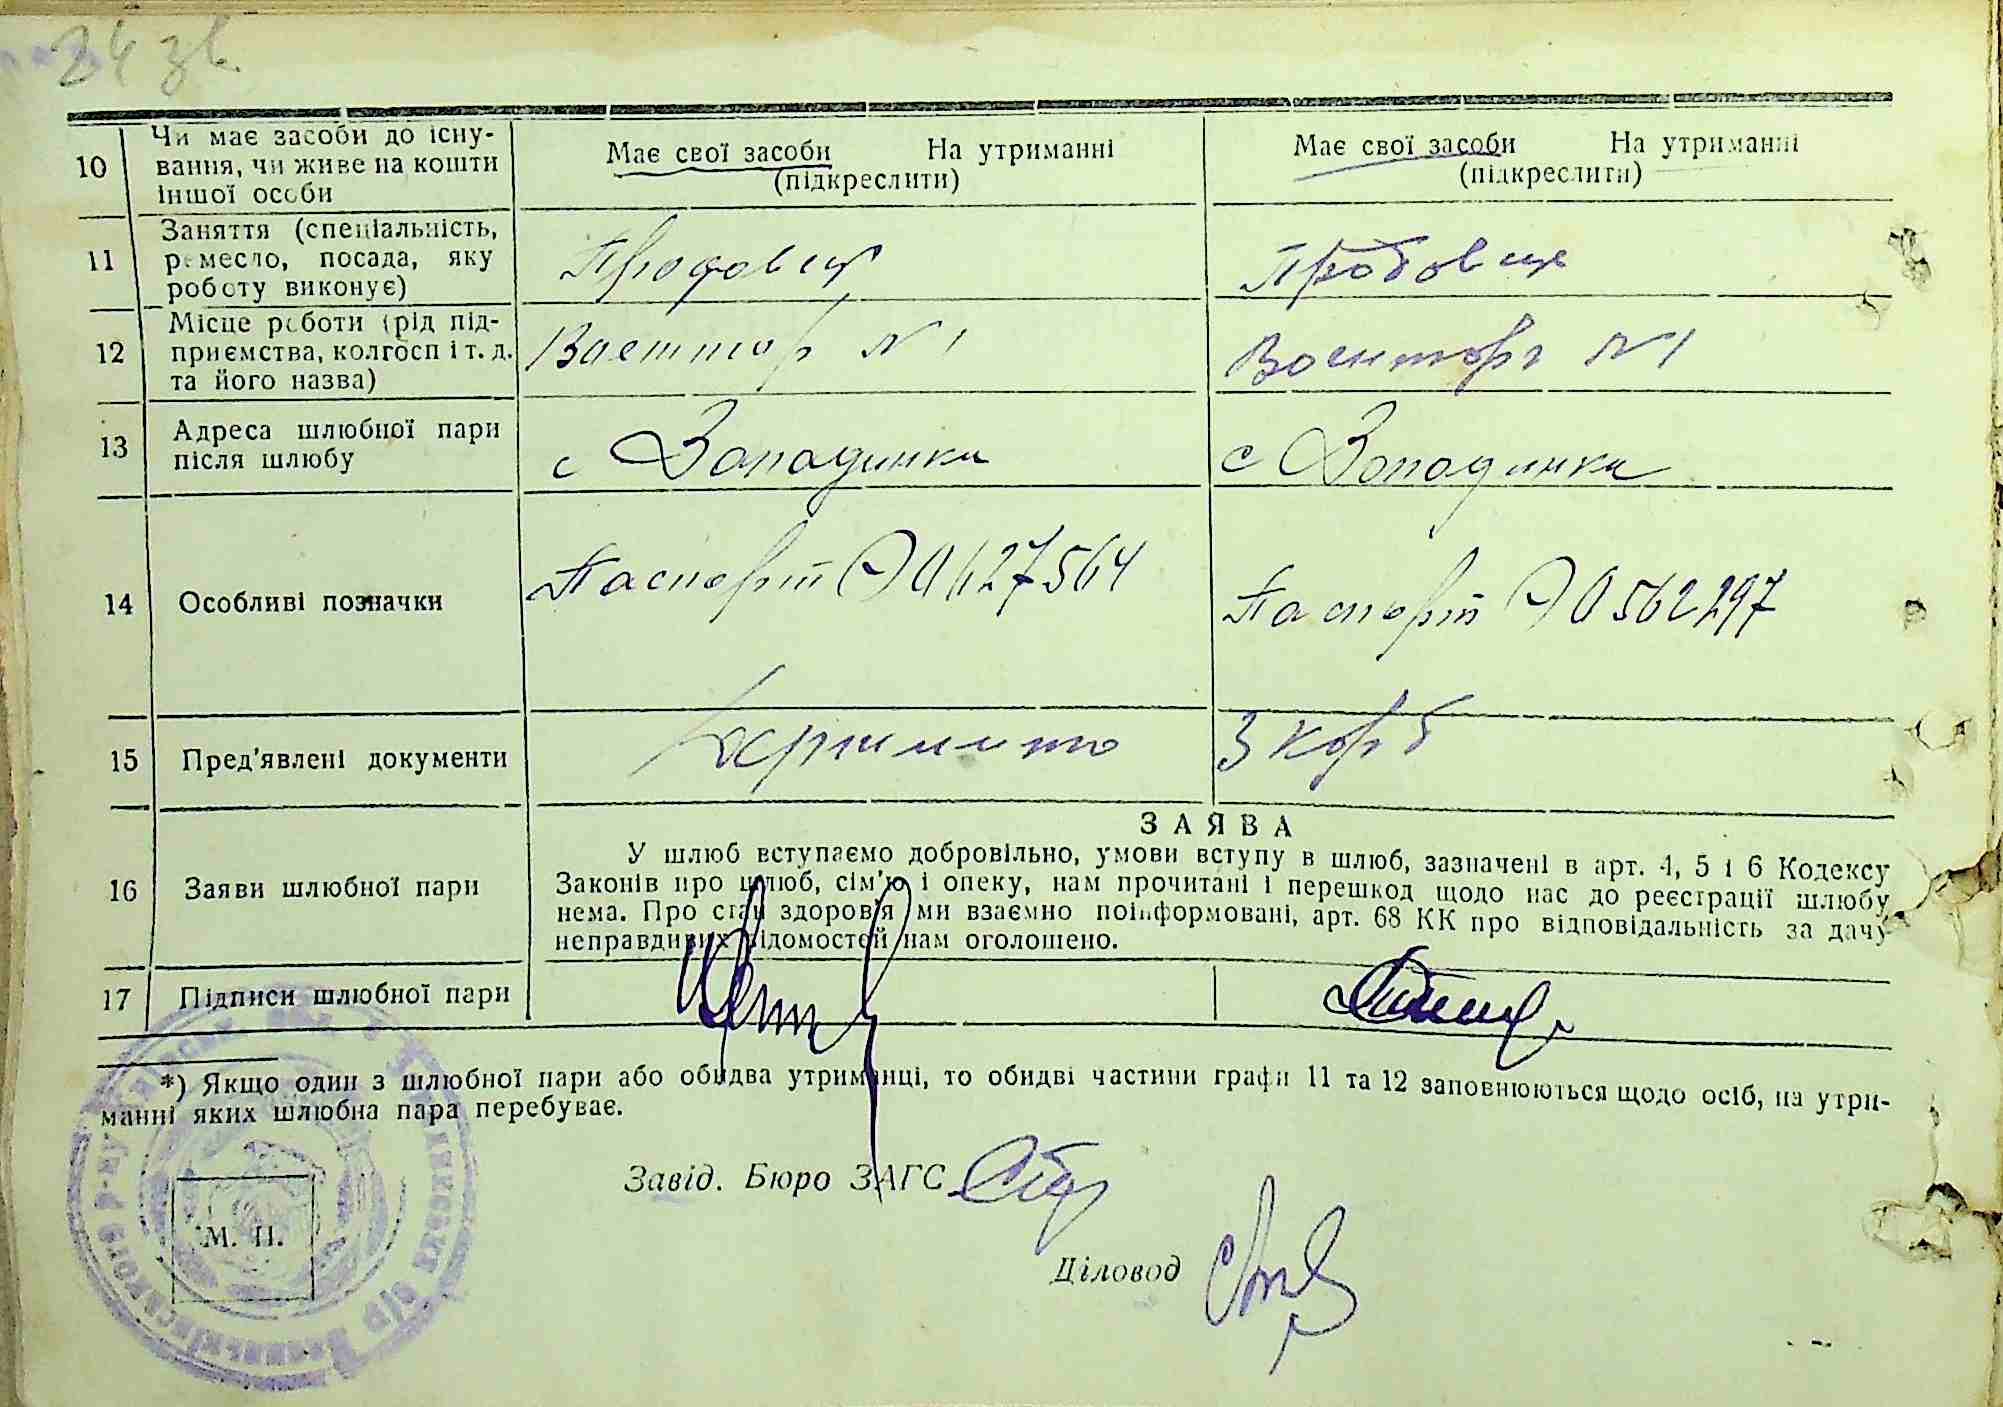 34 зв.
10 Чи має засоби до існу-
вання, чи живе на кошти
іншої особи
Має свої засоби На утриманні
(підкреслити)
Має свої засоби На утриманні
(підкреслити)
11 Заняття (спеціальність,
ремесло, посада, яку
роботу виконує)
Продовец
Продовец
12 Місце роботи (рід під-
приємства, колгосп і т. д.
та його назва)
Воентор N 1
Воентор N 1
13 Адреса шлюбної пари
після шлюбу
с Западинка
с Западинка
14 Особливі позначки
Паспорт 0627564
Паспорт 0562297
15 Пред'явлені документи
16 Заяви шлюбної пари
ЗАЯВА
У шлюб вступаємо добровільно, умови вступу в шлюб, зазначені в арт. 4, 5 і 6 Кодексу
Законів про шлюб, сім'ю і опеку, нам прочитані і перешкод щодо нас до реєстрації шлюбу
нема. Про стан здоров'я ми взаємно поінформовані, арт. 68 КК про відповідальність за дачу
неправдивих відомостей нам оголошено.
17 Підписи шлюбної пари
*) Якщо один з шлюбної пари або обидва утриманці, то обидві частини графи 11 та 12 заповнюються щодо осіб, на утри-
манні яких шлюбна пара перебуває.
Завід. Бюро ЗАГС
М. П.
Діловод